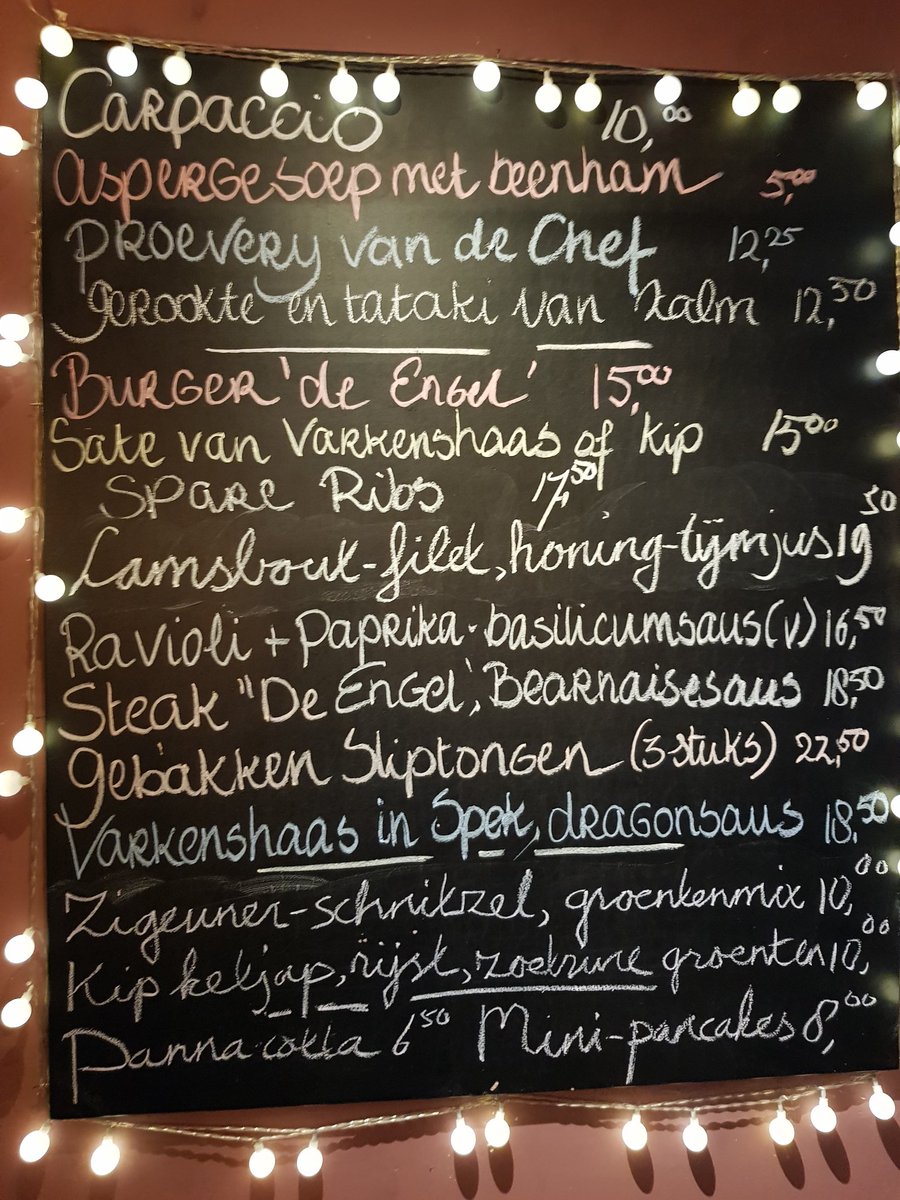 Carpaccio 10,00
Aspergesoep met beenham 5,00
Proevery van de Chef 12,25
gerookte en tataki van Zalm 12,50
Burger 'de Engel' 15,00
Sate van Varkenshaas of kip 15,00
Spare Ribs 17,50
Lamsbout-filet, honing-tijmjus 19 50
Ravioli + Paprika-basilicumsaus (v) 16,50
Steak "De Engel', Bearnaisesaus 18,50
gebakken Sliptongen (3 stuks) 22,50
Varkenshaas in Spek, dragonsaus 18,50
Zigeuner-schnitzel, groentenmix 10,00
Kip ketjap, rijst, zoetzure groenten 10,00
Panna cotta 6 50 Mini-pancakes 8,00